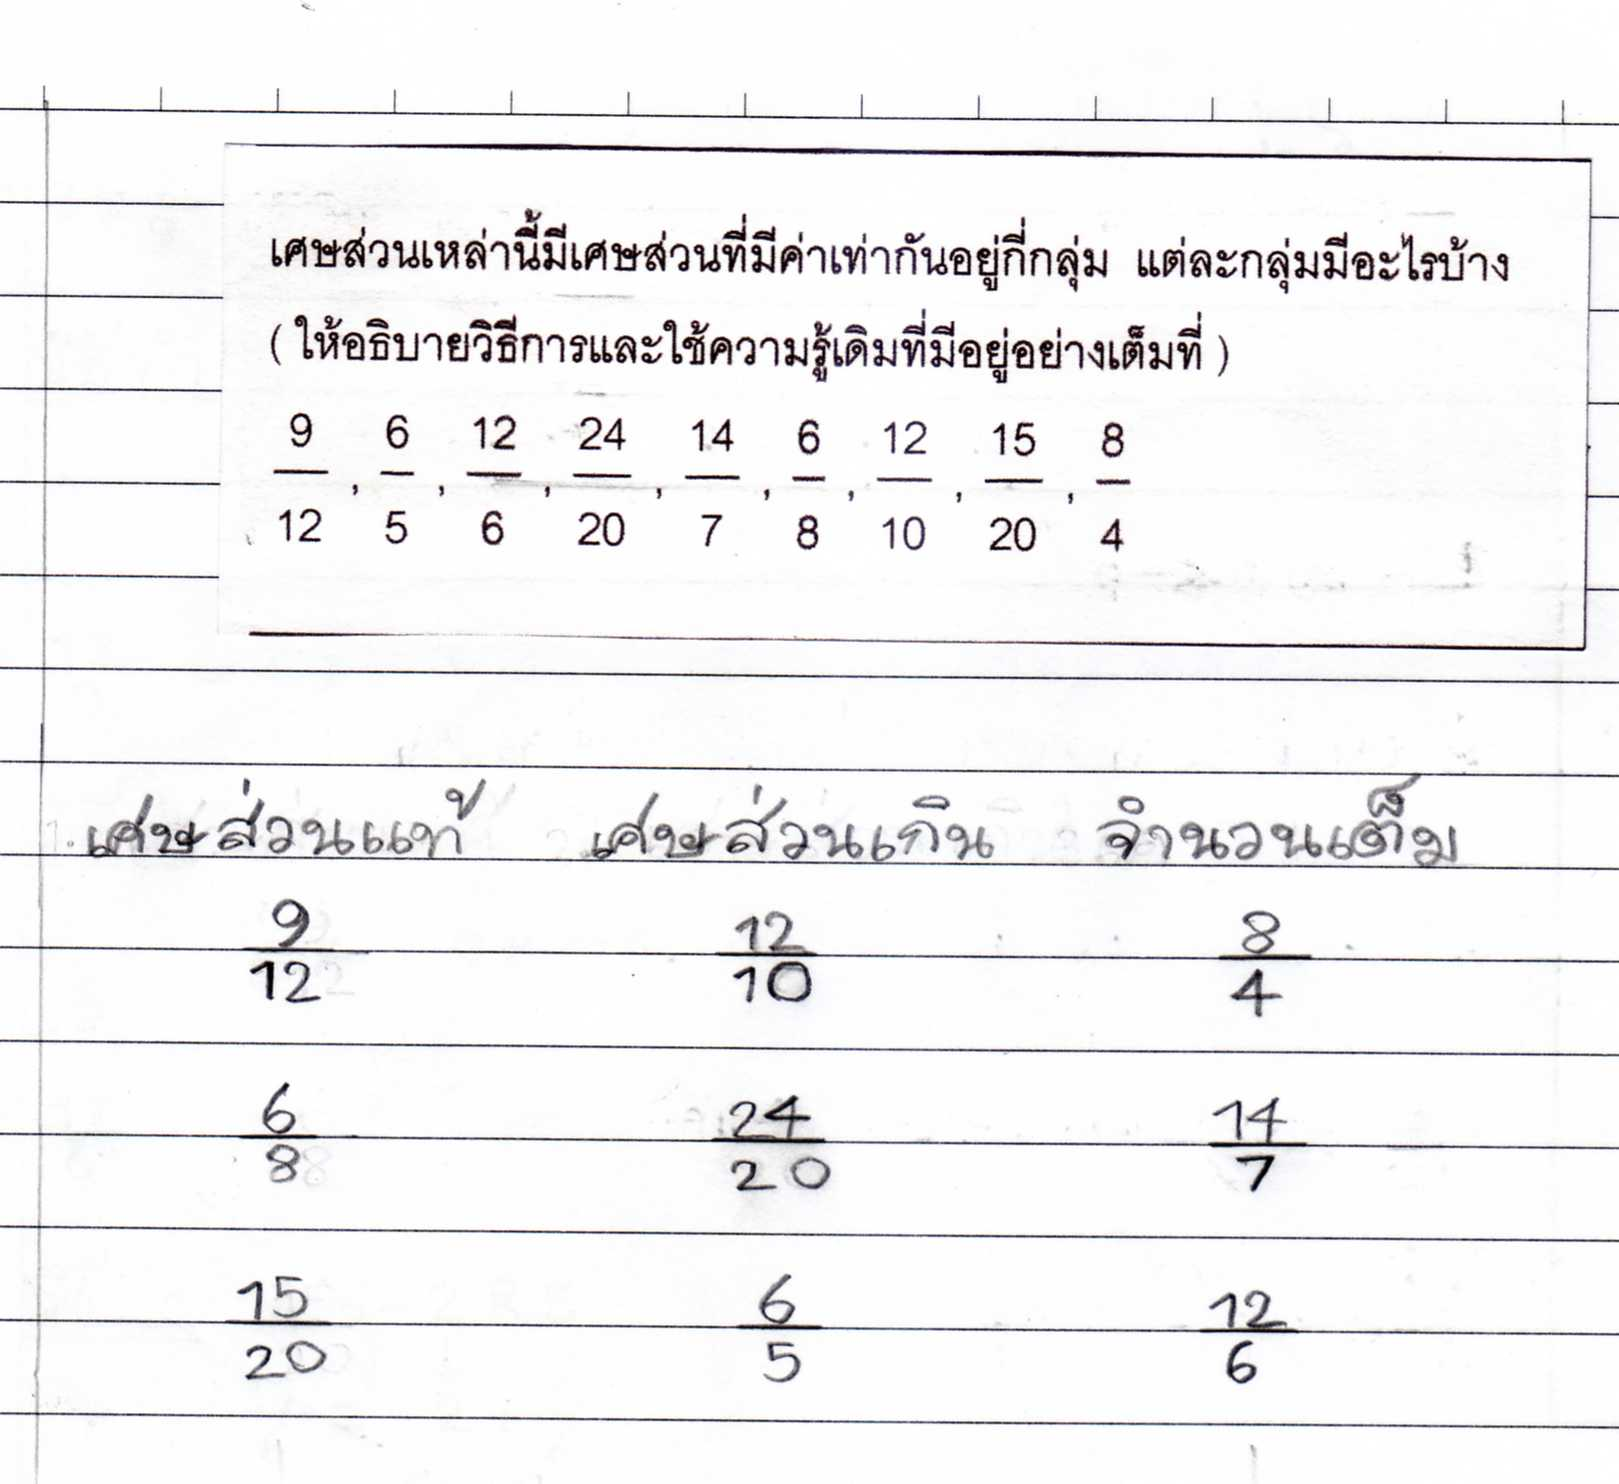 เศษส่วนเหล่านี้มีเศษส่วนที่มีค่าเท่ากันอยู่กี่กลุ่ม แต่ละกลุ่มมีอะไรบ้าง
( ให้อธิบายวิธีการและใช้ความรู้เดิมที่มีอยู่อย่างเต็มที่ )
9/12 , 6/5 , 12/6 , 24/20 , 14/7 , 6/8 , 12/10 , 15/20 , 8/4
เศษส่วนแท้ เศษส่วนเกิน จำนวนเต็ม
9/12 12/10 8/4
6/8 24/20 14/7
15/20 6/5 12/6